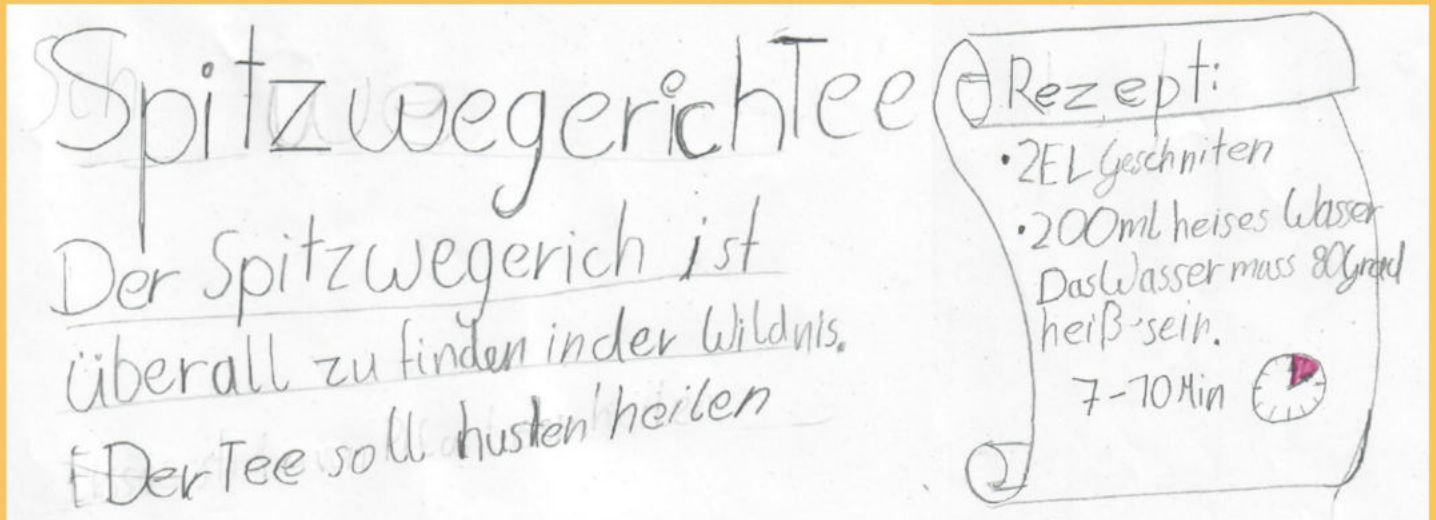 SpitzwegerichTee
Der Spitzwegerich ist
überall zu finden in der Wildnis.
Der Tee soll husten heilen
Rezept:
• 2EL Geschniten
• 200ml heises Wasser
Das Wasser muss 80Grad
heiß sein.
7-10 Min